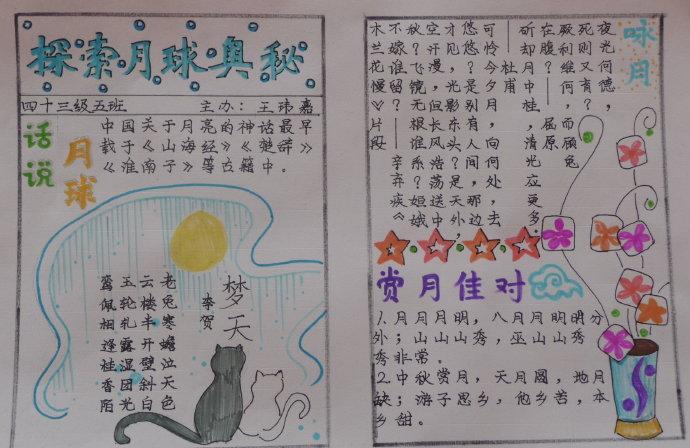 探索月球奥秘
四十三级五班 主办：王玮嘉
话说月球
中国关于月亮的神话最早
载于《山海经》《楚辞》
《淮南子》等古籍中。
梦天
李贺
老兔寒蟾泣天色
云楼半开壁斜白
玉轮轧露湿团光
鸾佩相逢桂香陌
咏月
夜光何德，
死则又育？
厥利维何，而顾兔
在腹？——屈原
斫却月中桂，清光应更多。
——杜甫
可怜今夕月，向何处，去
悠悠？
木兰花慢
片段
赏月佳对
1、月月月明，八月月明明分
外；山山山秀，巫山山秀
秀非常。
2、中秋赏月，天月圆，地月
缺；游子思乡，他乡苦，本
乡甜。